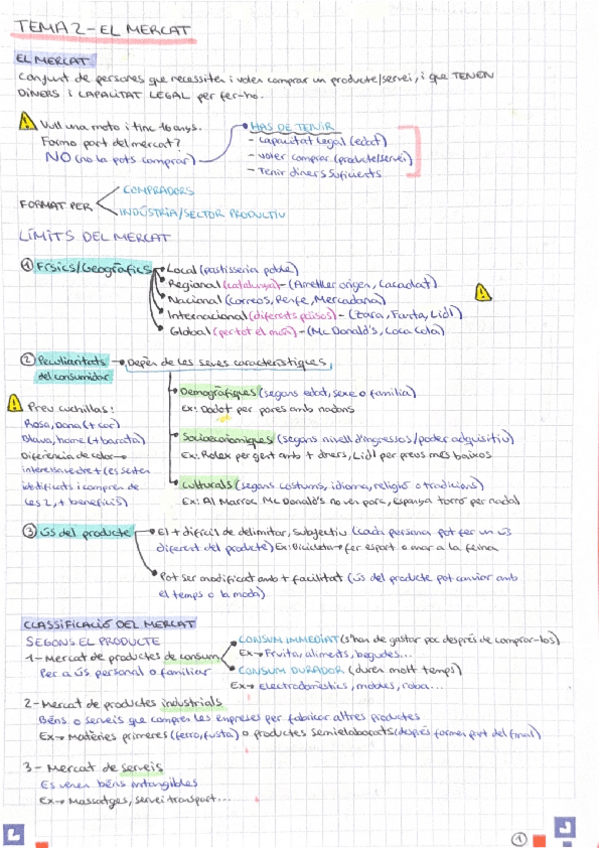 TEMA 2 - EL MERCAT
EL MERCAT
Conjunt de persones que necessiten i volen comprar un producte/servei, i que TENEN
DINERS I CAPACITAT LEGAL per fer-ho.
Vull una moto i tinc 16 anys.
Formo part del mercat?
NO (no la pots comprar)
HAS DE TENIR
- Capacitat legal (edat)
- Voler comprar (producte/servei)
- Tenir diners suficients
FORMAT PER
COMPRADORS
INDÚSTRIA/SECTOR PRODUCTIU
LÍMITS DEL MERCAT
① Físics/Geogràfics
Local (pastisseria poble)
Regional (catalunya) - (Ametller origen, Cacaolat)
Nacional (Correos, Renfe, Mercadona)
Internacional (diferents països) - (Zara, Fanta, Lidl)
Global (per tot el món) - (Mc Donald's, Coca Cola)
② Peculiaritats del consumidor → Depèn de les seves característiques
Demogràfiques (segons edat, sexe o familia)
Ex: Dodot per pares amb nadons
Socioeconòmiques (segons nivell d'ingressos/poder adquisitiu)
Ex: Rolex per gent amb + diners, Lidl per preus més baixos
Culturals (segons costums, idioma, religió o tradicions)
Ex: Al Marroc Mc Donald's no ven porc, Espanya torró per nadal
Preu cuchillas:
Rosa, dona (+ car)
Blava, home (+ barata)
Diferència de color →
identificats i compren de
les 2, + beneficis)
③ Ús del producte
El + difícil de delimitar, subjectiu (cada persona pot fer un ús
diferent del producte) Ex: Bicicleta → fer esport o anar a la feina
Pot ser modificat amb + facilitat (ús del producte pot canviar amb
el temps o la moda)
CLASSIFICACIÓ DEL MERCAT
SEGONS EL PRODUCTE
1 - Mercat de productes de consum
Per a ús personal o familiar
CONSUM IMMEDIAT (s'han de gastar poc després de comprar-los)
Ex → Fruita, aliments, begudes...
CONSUM DURADOR (duren molt temps)
Ex → Electrodomèstics, mobles, roba...
2 - Mercat de productes industrials
Béns o serveis que compren les empreses per fabricar altres productes
Ex → Matèries primeres (ferro, fusta) o productes semielaborats (després formen part del final)
3 - Mercat de serveis
Es venen béns intangibles
Ex → Massatges, servei transport...
1